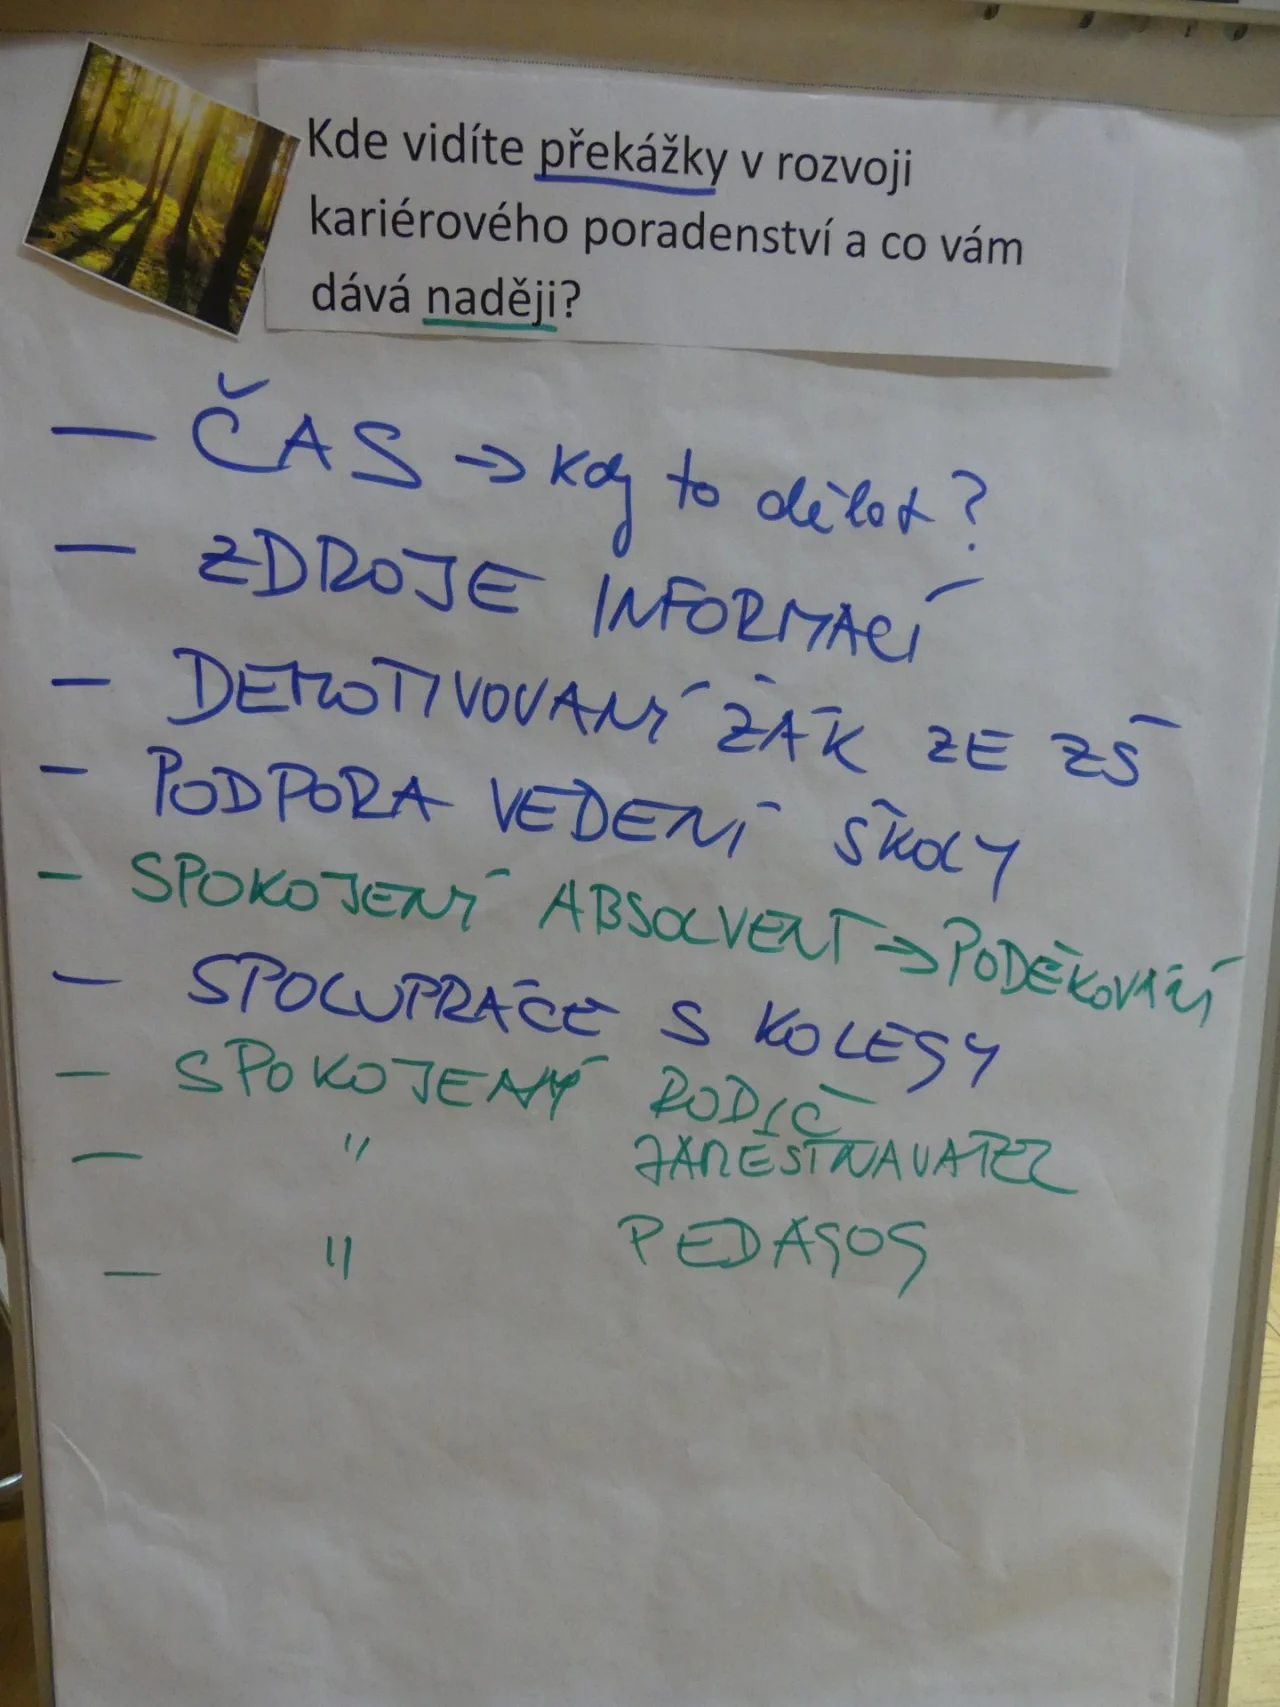 Kde vidíte překážky v rozvoji
kariérového poradenství a co vám
dává naději?
— ČAS → kdy to dělat?
— ZDROJE INFORMACÍ
— DEMOTIVOVANÍ ŽÁK ZE ZŠ
— PODPORA VEDENÍ ŠKOLY
— SPOKOJENÍ ABSOLVENT → PODĚKOVÁNÍ
— SPOLUPRÁCE S KOLEGY
— SPOKOJENÝ RODIČ
— " ZAMĚSTNAVATEL
— " PEDAGOG